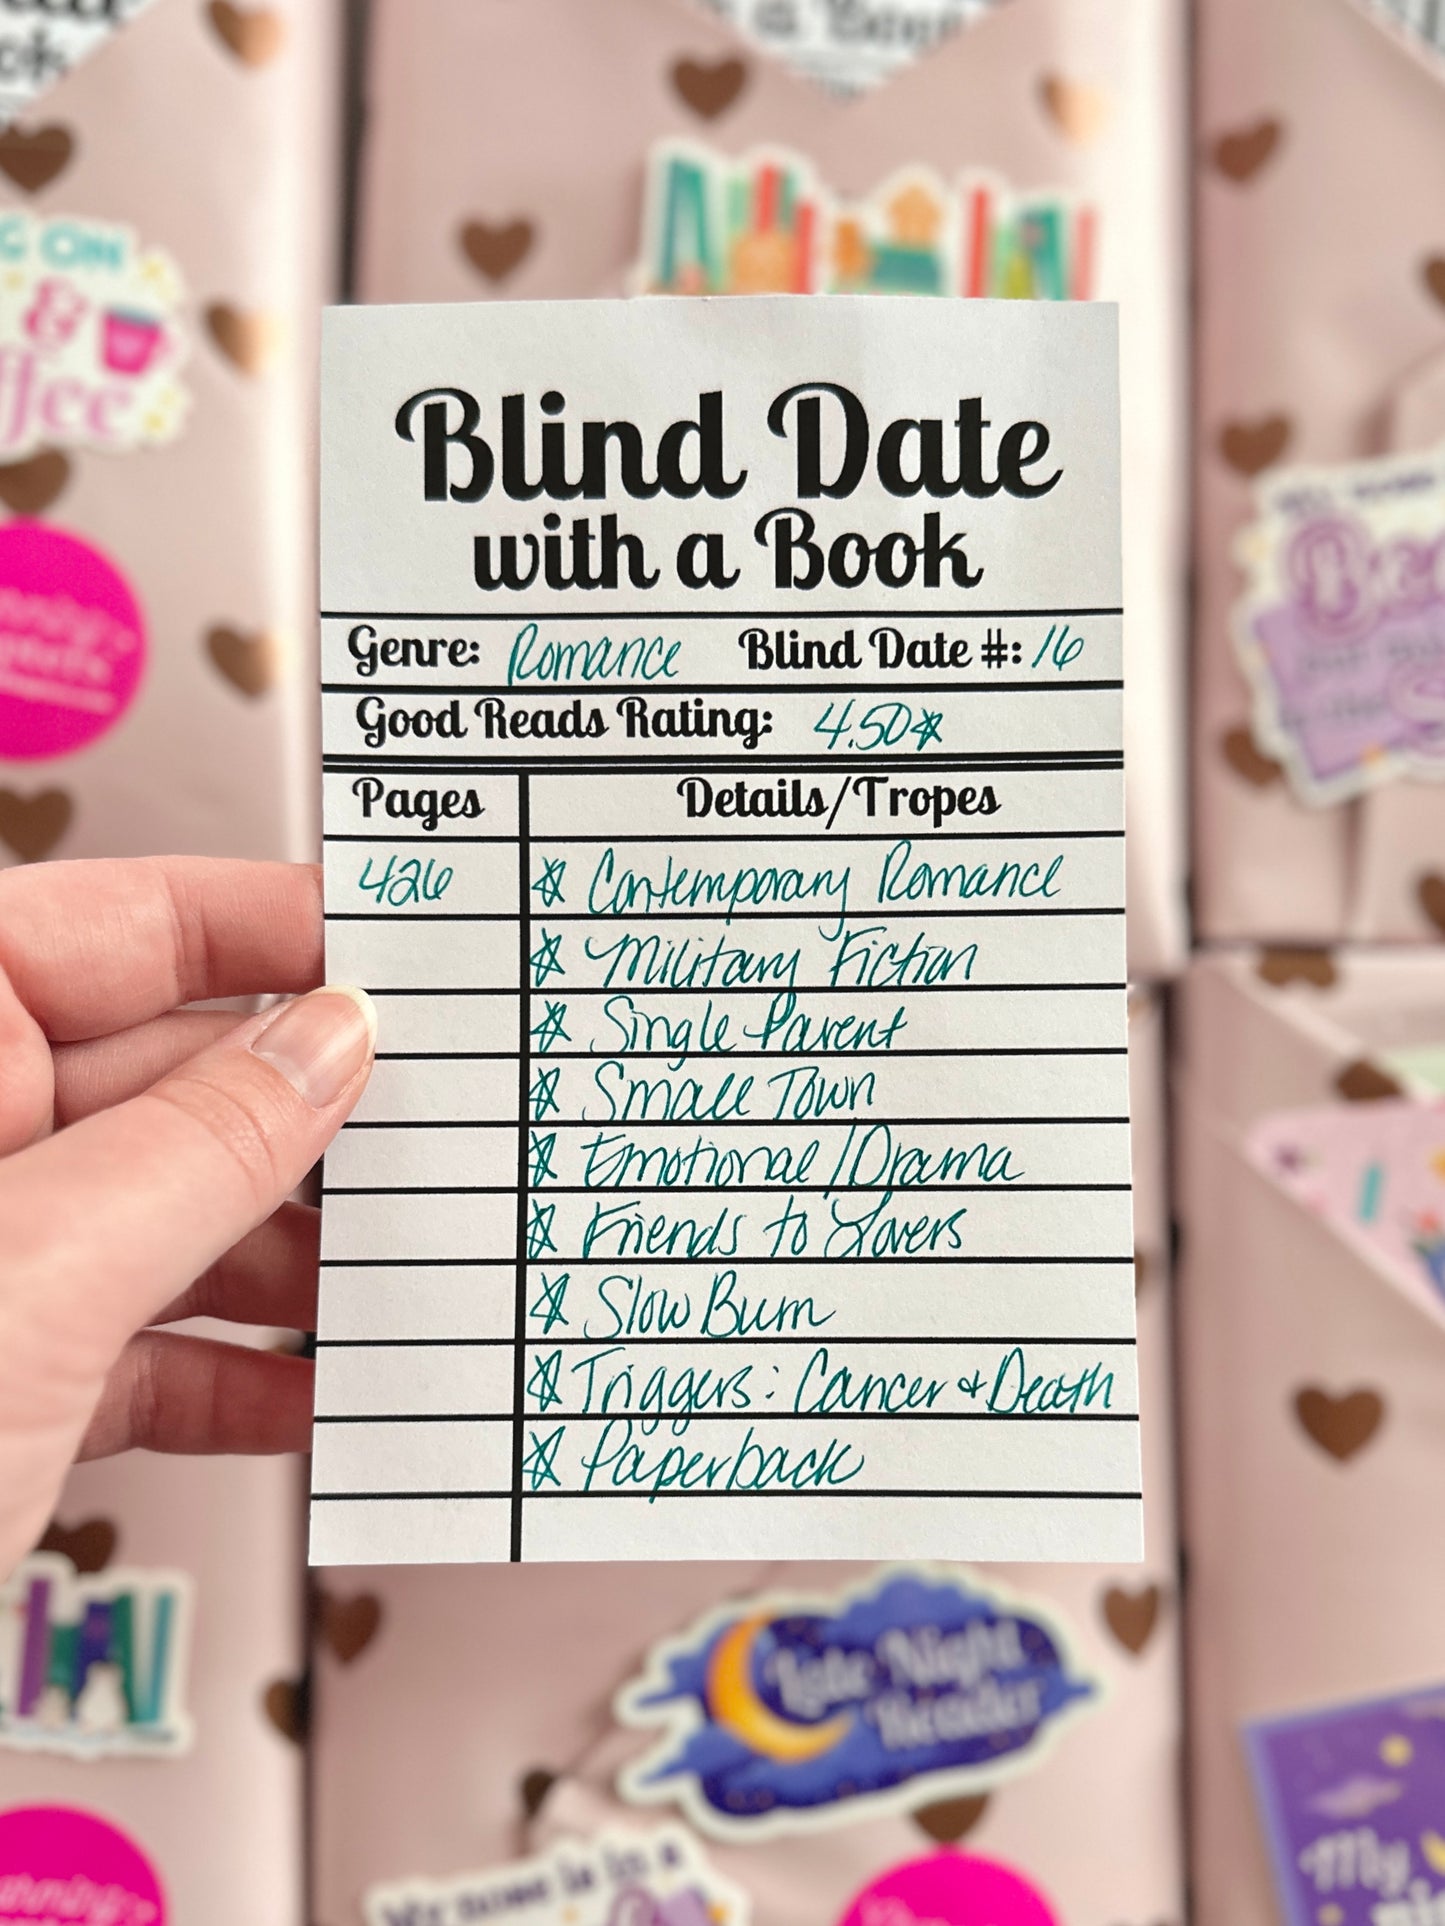 a Book
G ON
&
ffee
Blind Date
with a Book
Genre: Romance Blind Date #: 16
Good Reads Rating: 4.50☆
Pages Details/Tropes
426 ☆ Contemporary Romance
☆ Military Fiction
☆ Single Parent
☆ Small Town
☆ Emotional/Drama
☆ Friends to Lovers
☆ Slow Burn
☆ Triggers: Cancer & Death
☆ Paperback
Late Night
Reader
My nose is in a
My